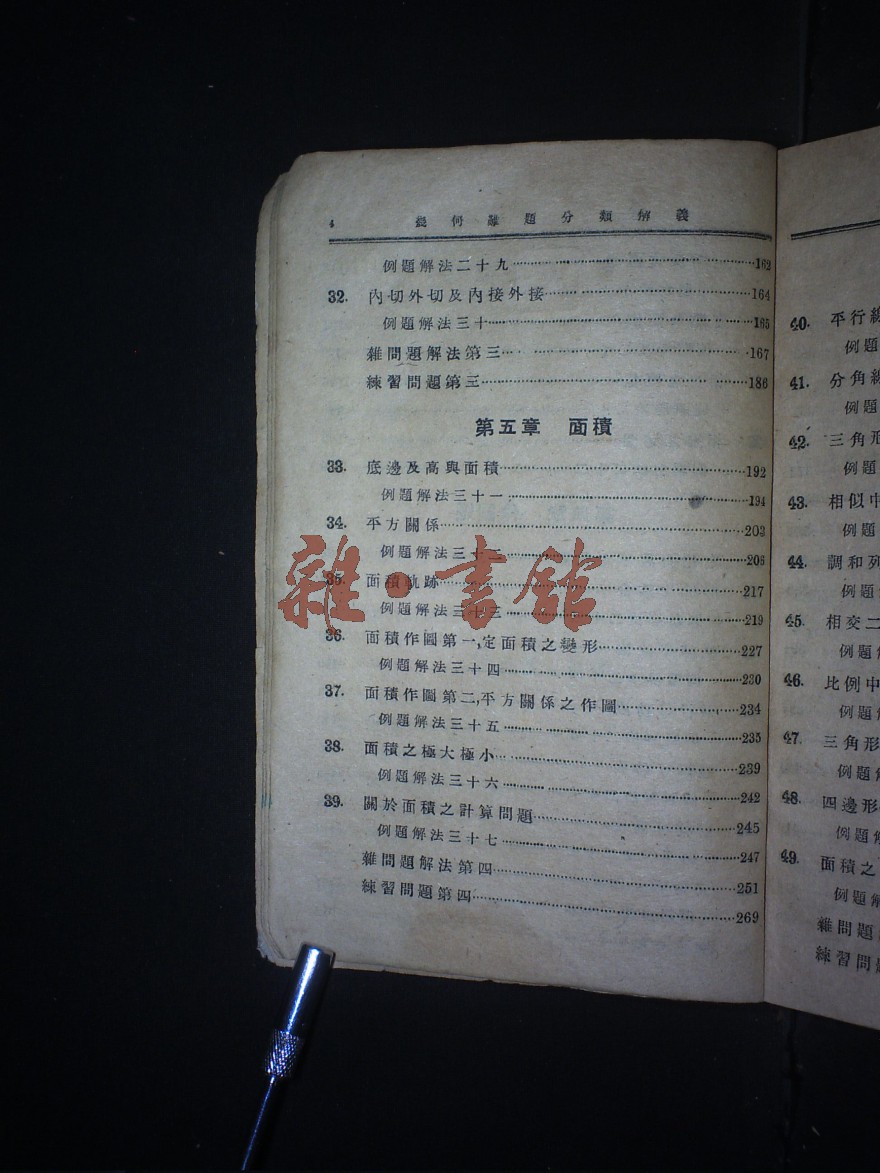 4 幾何難題分類解義
例題解法二十九 162
32. 內切外切及內接外接 164
例題解法三十 165
雜問題解法第三 167
練習問題第三 186
第五章 面積
33. 底邊及高與面積 192
例題解法三十一 194
34. 平方關係 203
例題解法三十二 206
35. 面積軌跡 217
例題解法三十三 219
36. 面積作圖第一,定面積之變形 227
例題解法三十四 230
37. 面積作圖第二,平方關係之作圖 234
例題解法三十五 235
38. 面積之極大極小 239
例題解法三十六 242
39. 關於面積之計算問題 245
例題解法三十七 247
雜問題解法第四 251
練習問題第四 269
雜·書館
40. 平行
例題
41. 分角
例題
42. 三角形
例題
43. 相似中
例題
44. 調和列
例題
45. 相交二
例題
46. 比例中
例題
47. 三角形
例題
48. 四邊形
例題
49. 面積之
例題
雜問題
練習問